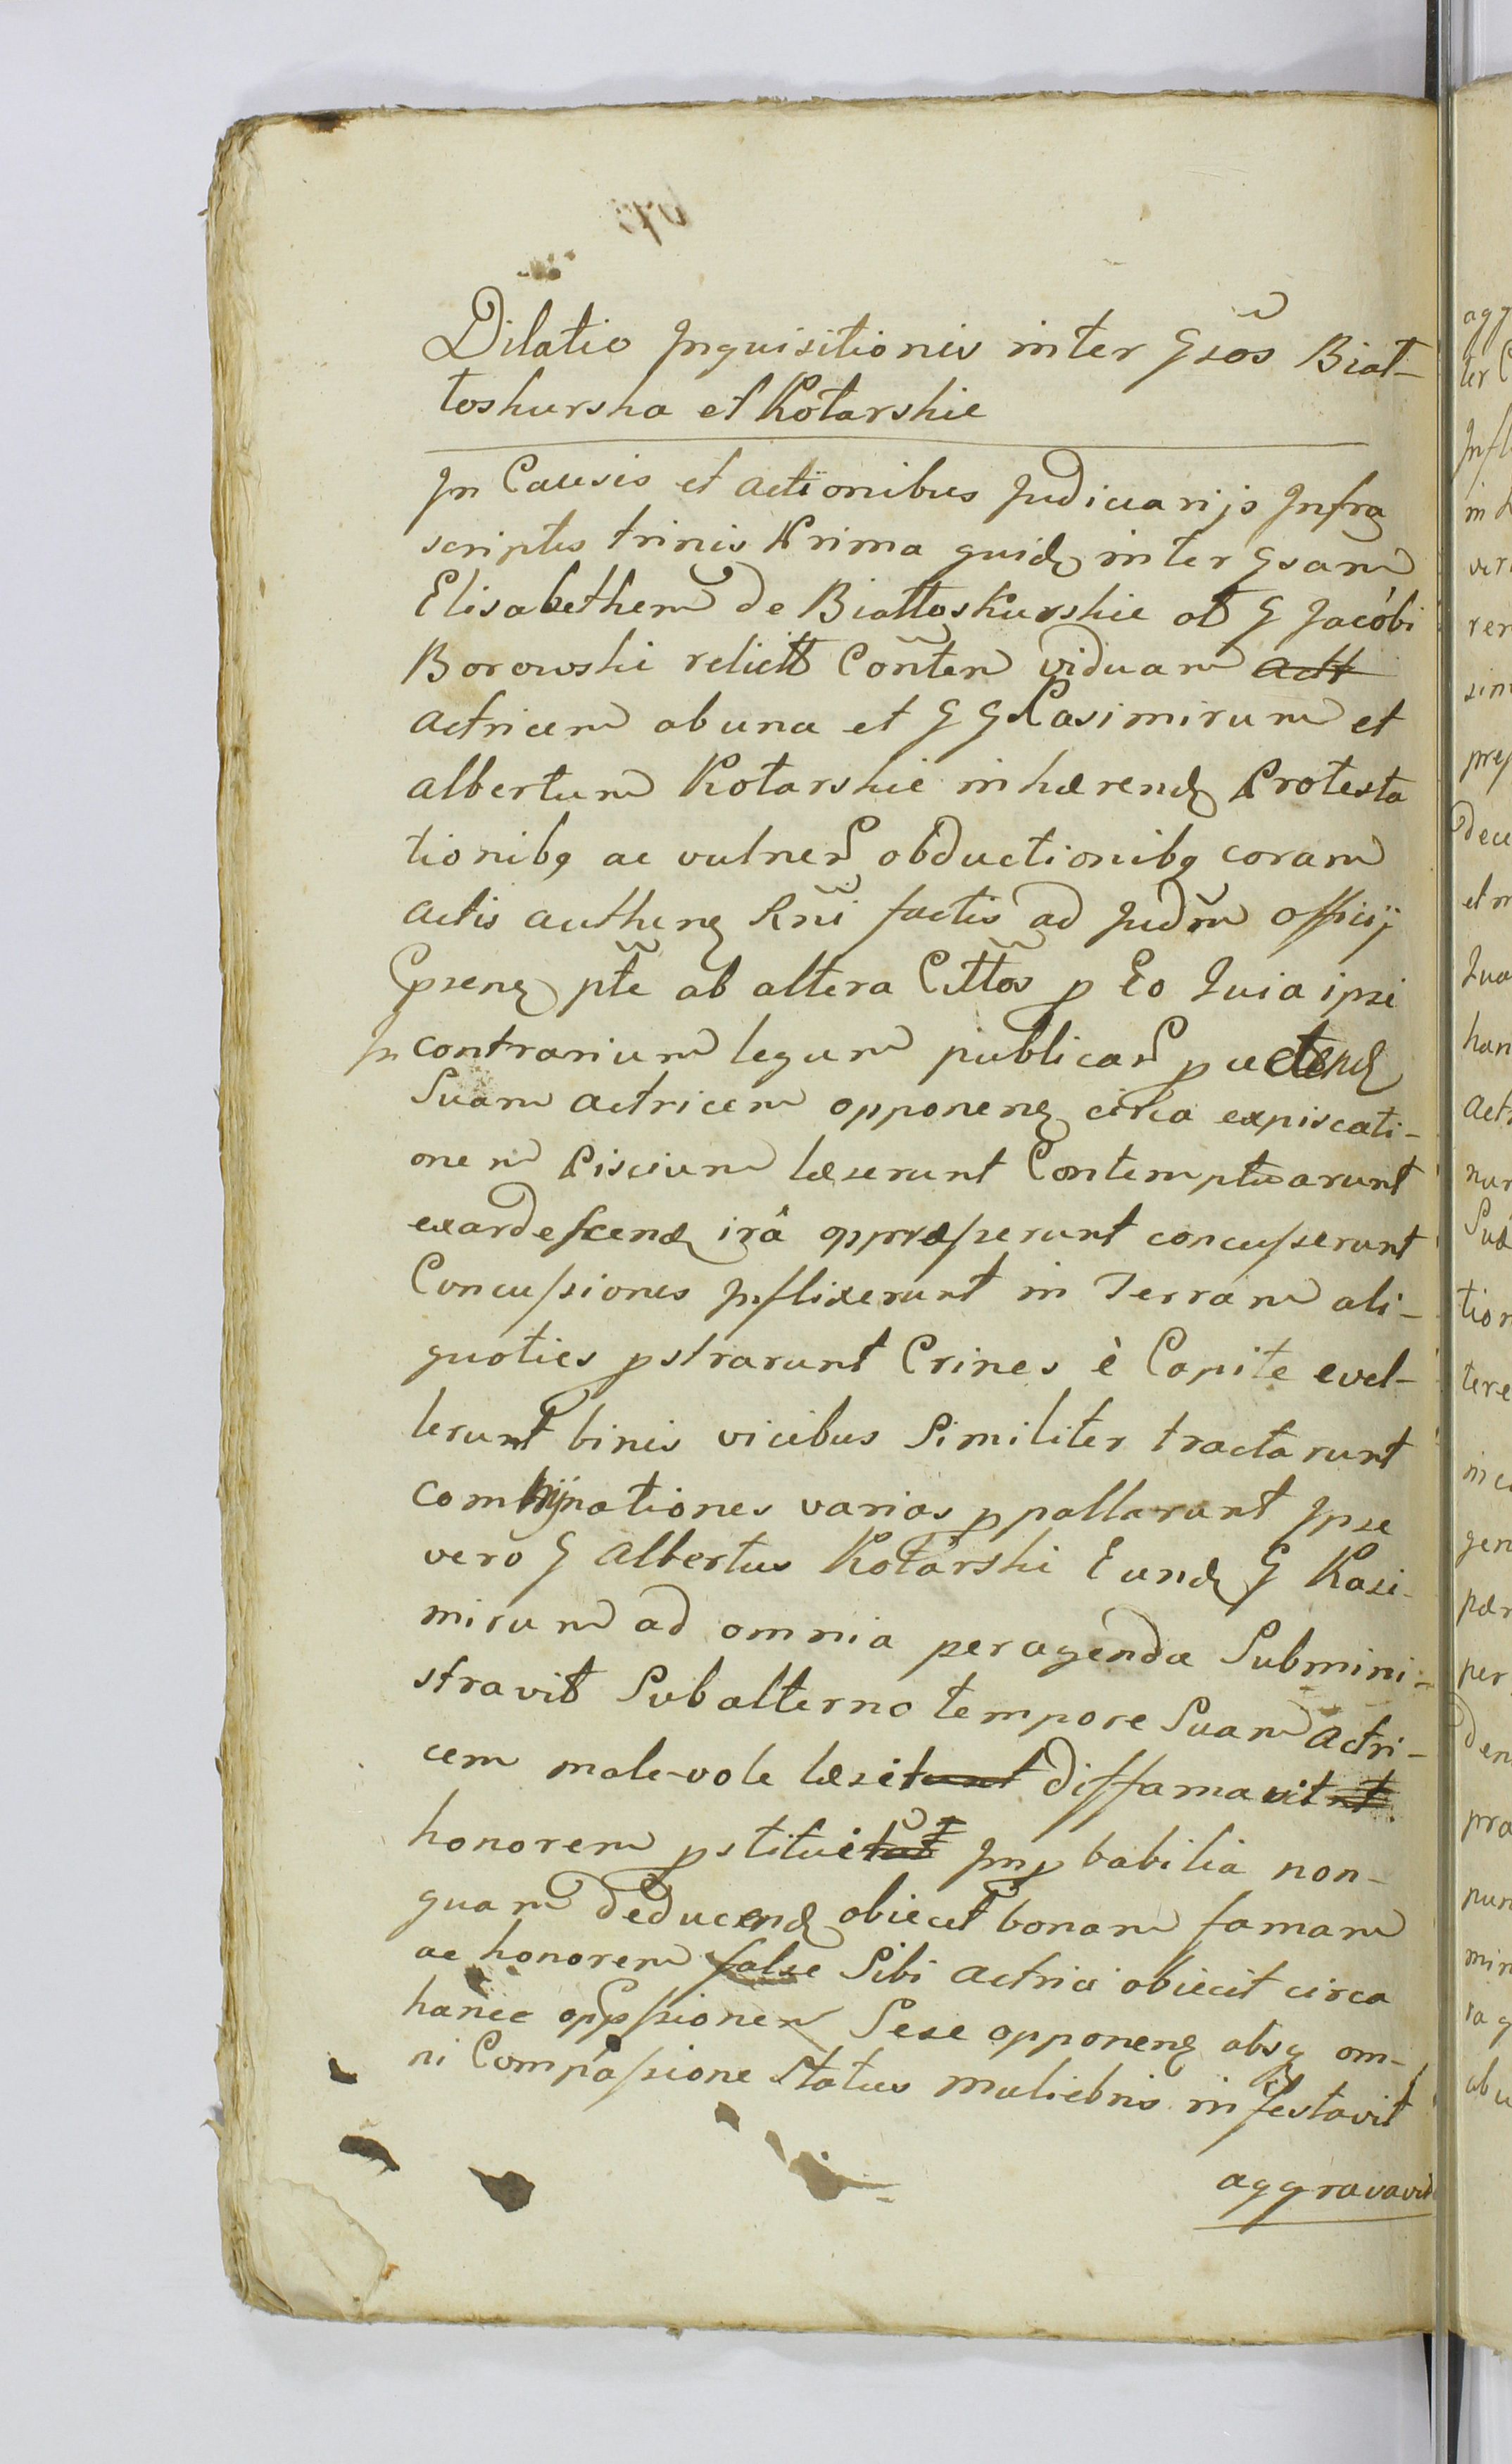 Dilatio Inquisitionis inter Gsos̃ Biał-
łoskurska et Kotarskie
In Causis et Actionibus Judiciarijs Infra
scriptis trinis Prima quidȩ inter Gsam
Elisabetham de Białłoskurskie olt G Jacobi
Borowski relictt Conte͂m viduam act
Actricem ab una et G G Casimirum et
Albertum Kotarskie inhærendȩ Protesta
tionibꝯ ac vulner͂ obductionibꝯ coram
Actis authenꝗ Rnĩ factis ad Judm̃ officij
ptẽ ab altera Cittos̃ p Eo Quia ipsi
In contrarium legum publicar͂
Suam Actricem opponenꝗ circa expiscati-
onem Piscium læserunt Contemptuarunt
exardescendȩ irâ oppræsserunt concusserunt
Concussiones Inflixerunt in Terram ali-
quoties pstrarunt Crines è Capite evel-
lerunt binis vicibus Similiter tractarunt
comminationes varias ppallarunt Ipse
vero G Albertus Kotarski Eundȩ G Kasi-
mirum ad omnia peragenda Submini-
stravit Subalterno tempore Suam Actri-
cem malevole læsit diffamavit
honorem pstituit Impbabilia non-
quam deducendȩ obiecit bonam famam
ac honorem false Sibi Actrici obiecit circa
hancc oppssionem Sese opponenꝗ absꝗ om-
ni Compassione Status muliebris infestavit
aggravavit